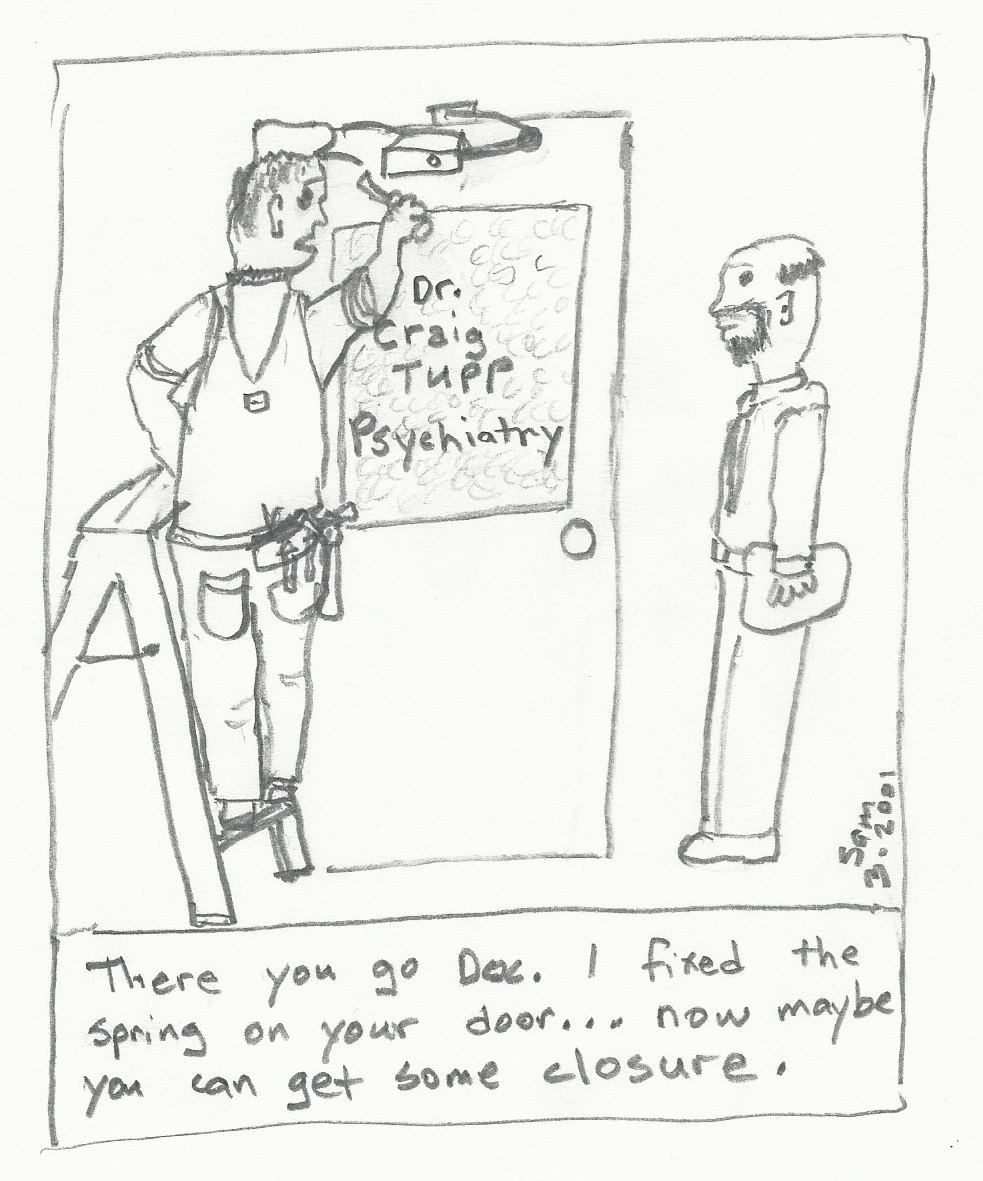 Dr.
Craig
TUPP
Psychiatry
Sam
3.2001
There you go Doc. I fixed the
spring on your door... now maybe
you can get some closure.